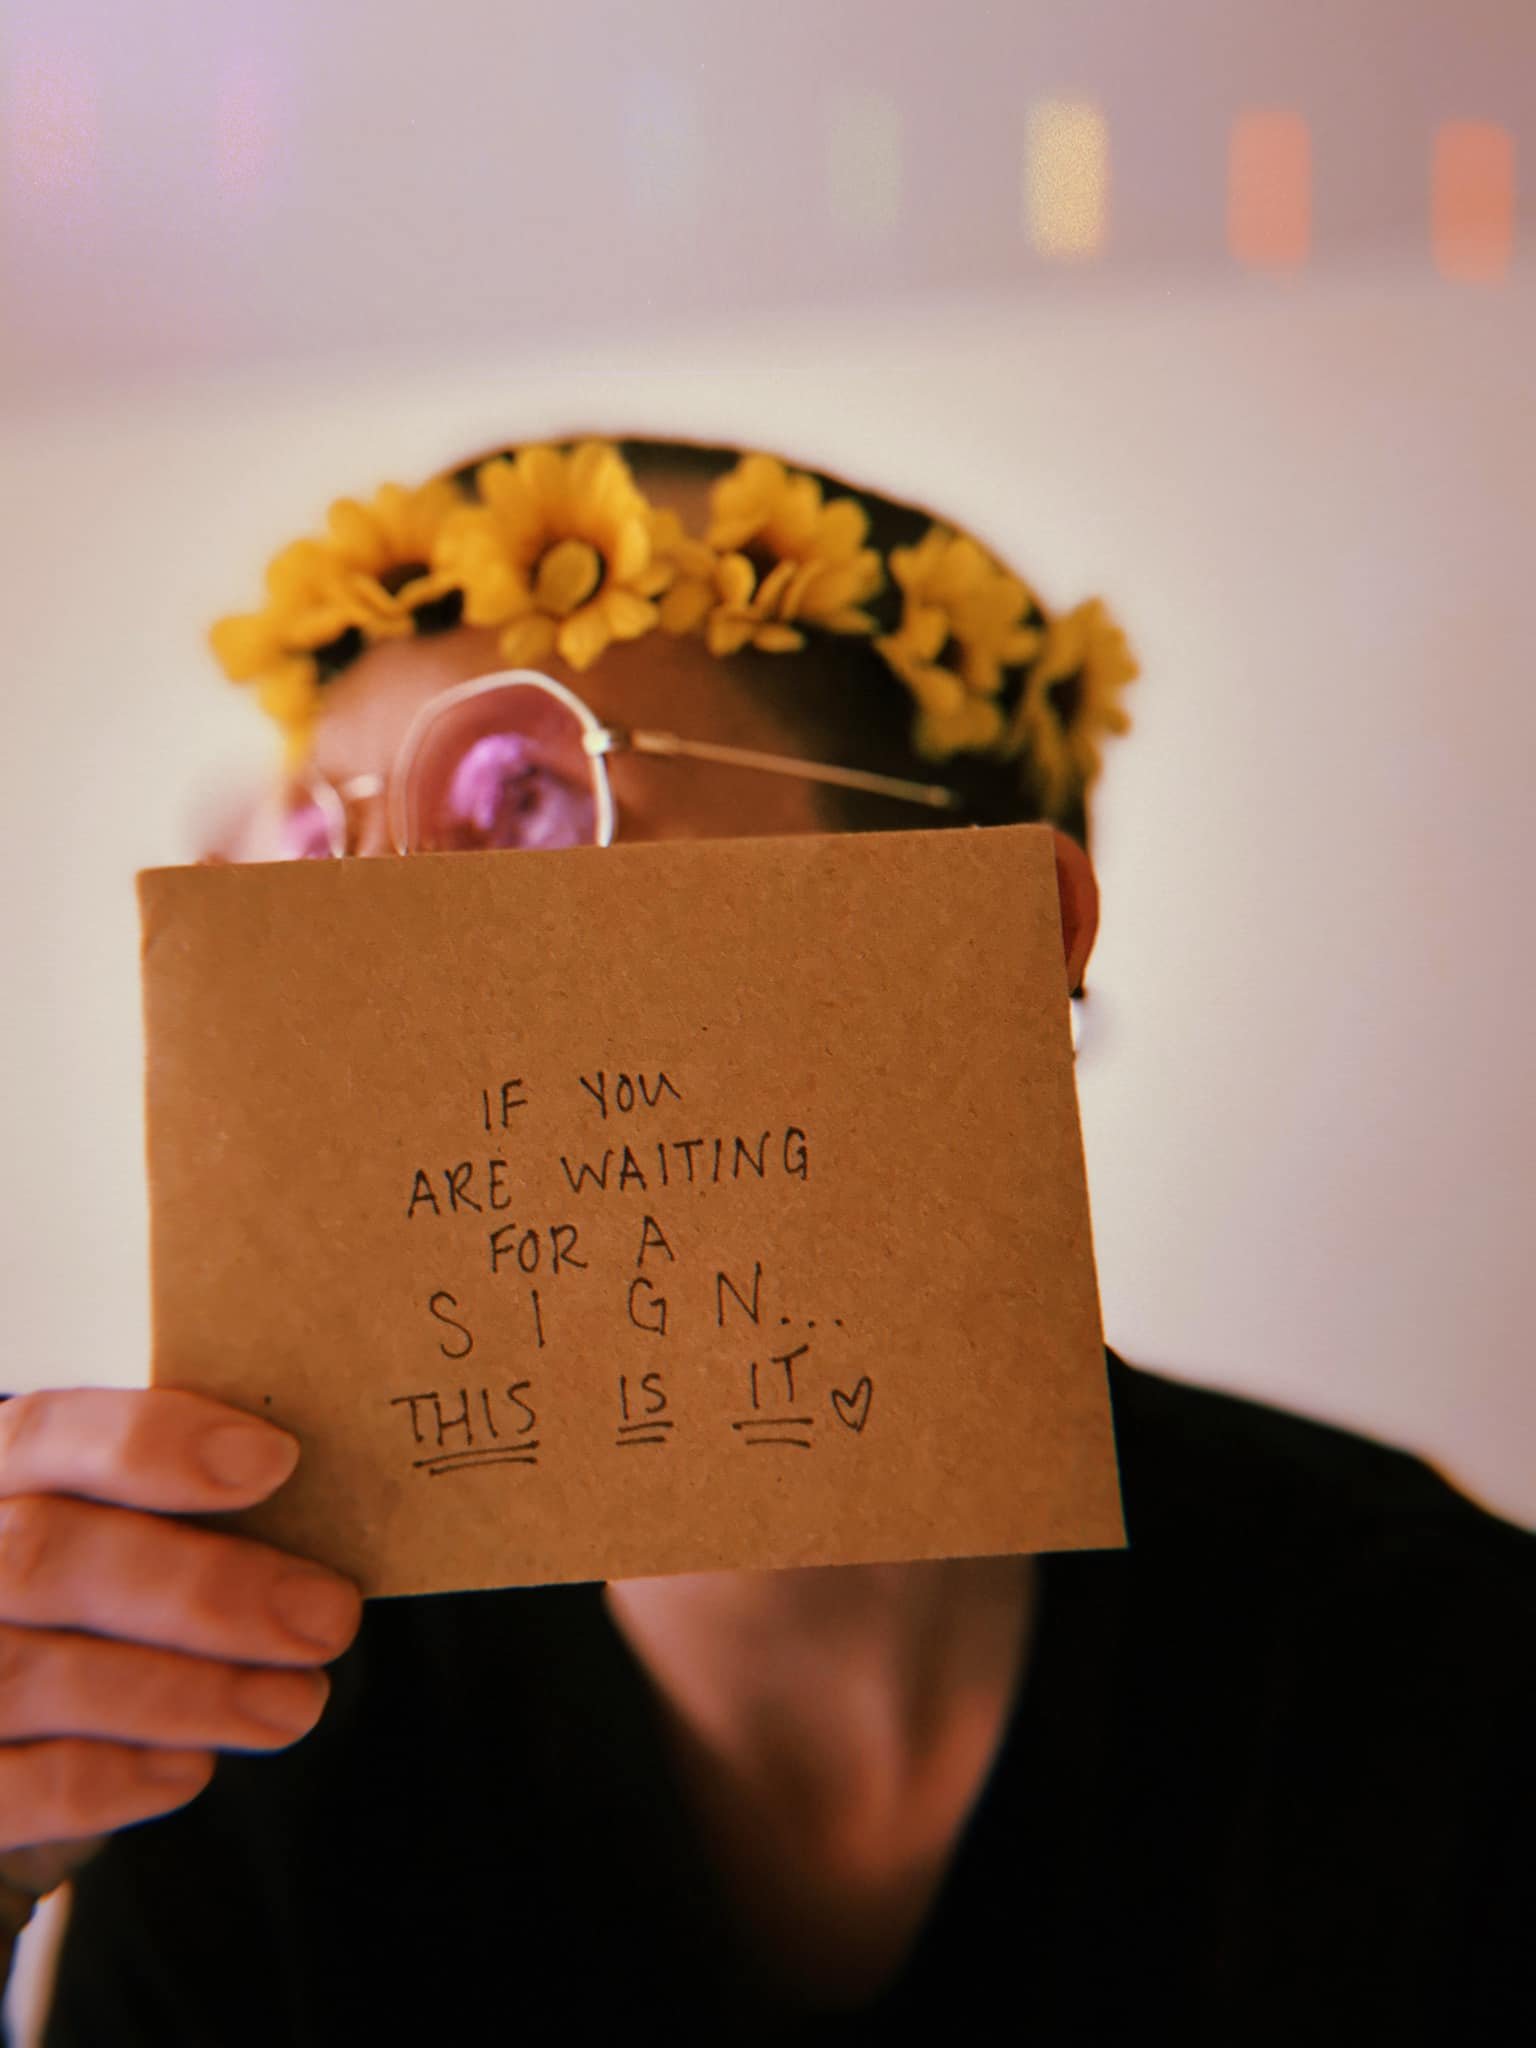 IF YOU
ARE WAITING
FOR A
SIGN...
THIS IS IT ♡